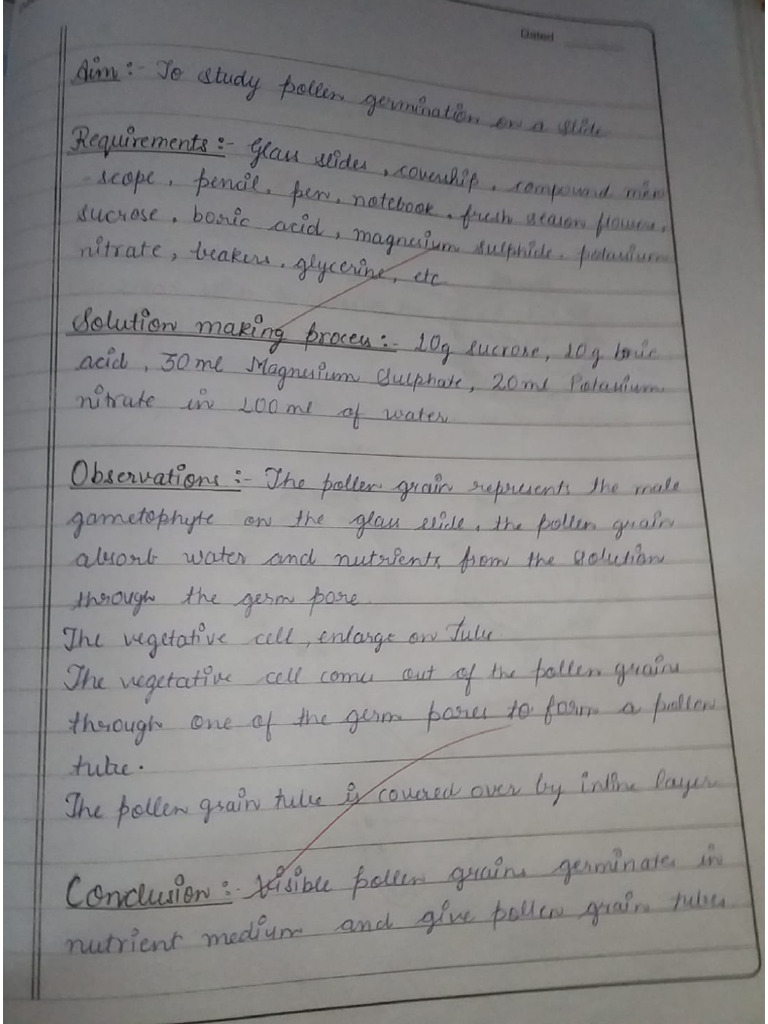 Dated
Aim:- To study pollen germination on a slide
Requirements:- Glass slides, coverslip, compound micro
-scope, pencil, pen, notebook, fresh season flowers,
sucrose, boric acid, magnesium sulphide, potassium
nitrate, beakers, glycerine, etc
Solution making process:- 10g sucrose, 10g boric
acid, 30ml Magnesium Sulphate, 20ml Potassium
nitrate in 100ml of water
Observations:- The pollen grain represents the male
gametophyte on the glass slide, the pollen grain
absorb water and nutrients from the solution
through the germ pore.
The vegetative cell, enlarge on Tube
The vegetative cell comes out of the pollen grains
through one of the germ pores to form a pollen
tube.
The pollen grain tube is covered over by intine layer
Conclusion:- Visible pollen grains germinates in
nutrient medium and give pollen grain tubes